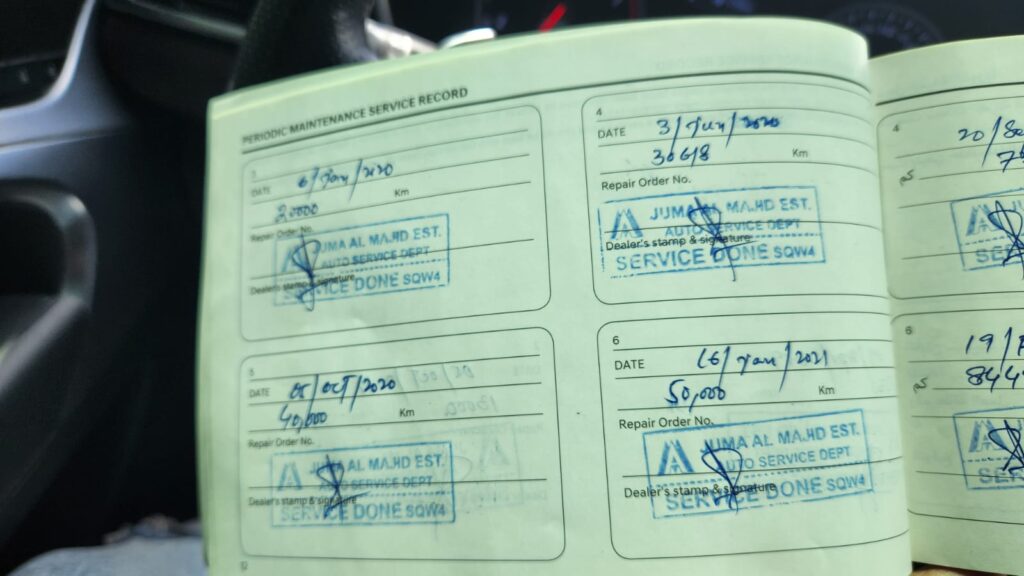 PERIODIC MAINTENANCE SERVICE RECORD
DATE 6/Jan/2020
20000 Km
Repair Order No.
JUMA AL MAJID EST.
AUTO SERVICE DEPT
Dealer's stamp & signature
SERVICE DONE SQW4
4
DATE 3/Jun/2020
30618 Km
Repair Order No.
JUMA AL MAJID EST.
AUTO SERVICE DEPT
Dealer's stamp & signature
SERVICE DONE SQW4
5
DATE 05/OCT/2020
40,000 Km
Repair Order No.
JUMA AL MAJID EST.
AUTO SERVICE DEPT
Dealer's stamp & signature
SERVICE DONE SQW4
6
DATE 16/Jan/2021
50,000 Km
Repair Order No.
JUMA AL MAJID EST.
AUTO SERVICE DEPT
Dealer's stamp & signature
SERVICE DONE SQW4
12
4
20/
كم
6
19/
كم 844